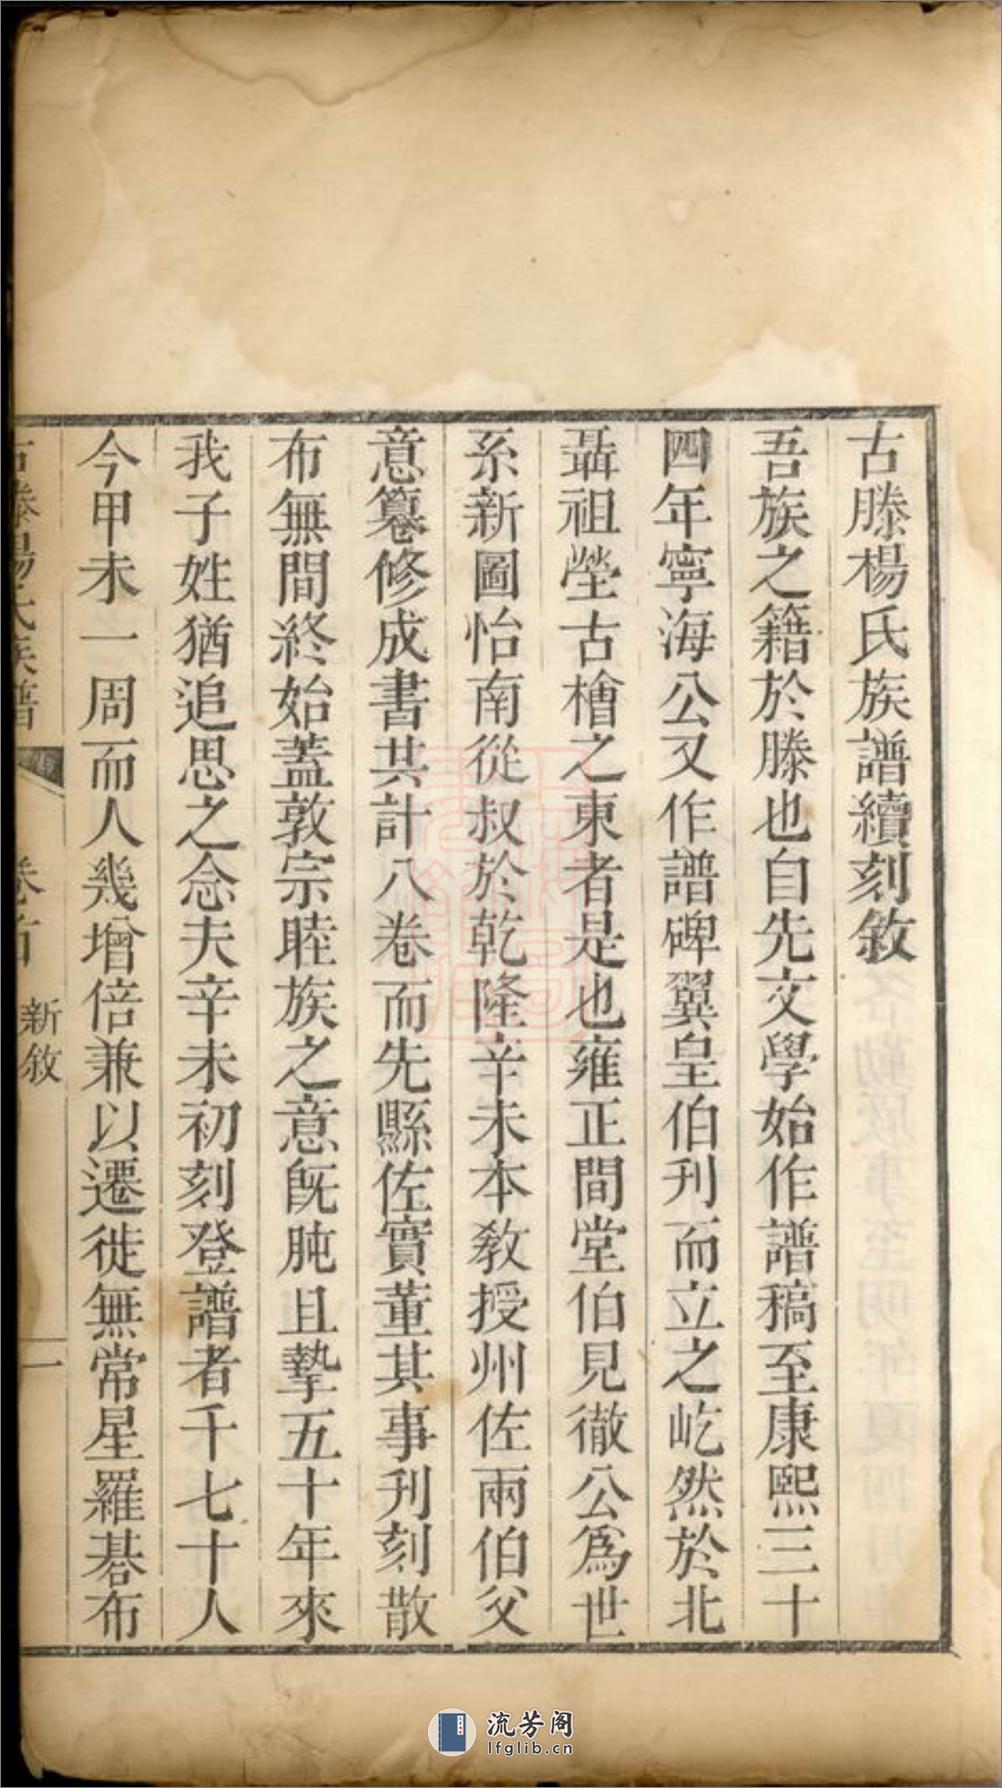 古滕楊氏族譜續刻敘
吾族之籍於滕也自先文學始作譜稿至康熙三十
四年寧海公又作譜碑翼皇伯刋而立之屹然於北
聶祖塋古檜之東者是也雍正間堂伯見徹公爲世
系新圖怡南從叔於乾隆辛未本敎授州佐兩伯父
意纂修成書共計八卷而先縣佐實董其事刋刻散
布無間終始蓋敦宗睦族之意旣肫且摯五十年來
我子姓猶追思之念夫辛未初刻登譜者千七十人
今甲未一周而人幾增倍兼以遷徙無常星羅碁布
古滕楊氏族譜 卷首 新敘 一
流芳阁
lfglib.cn